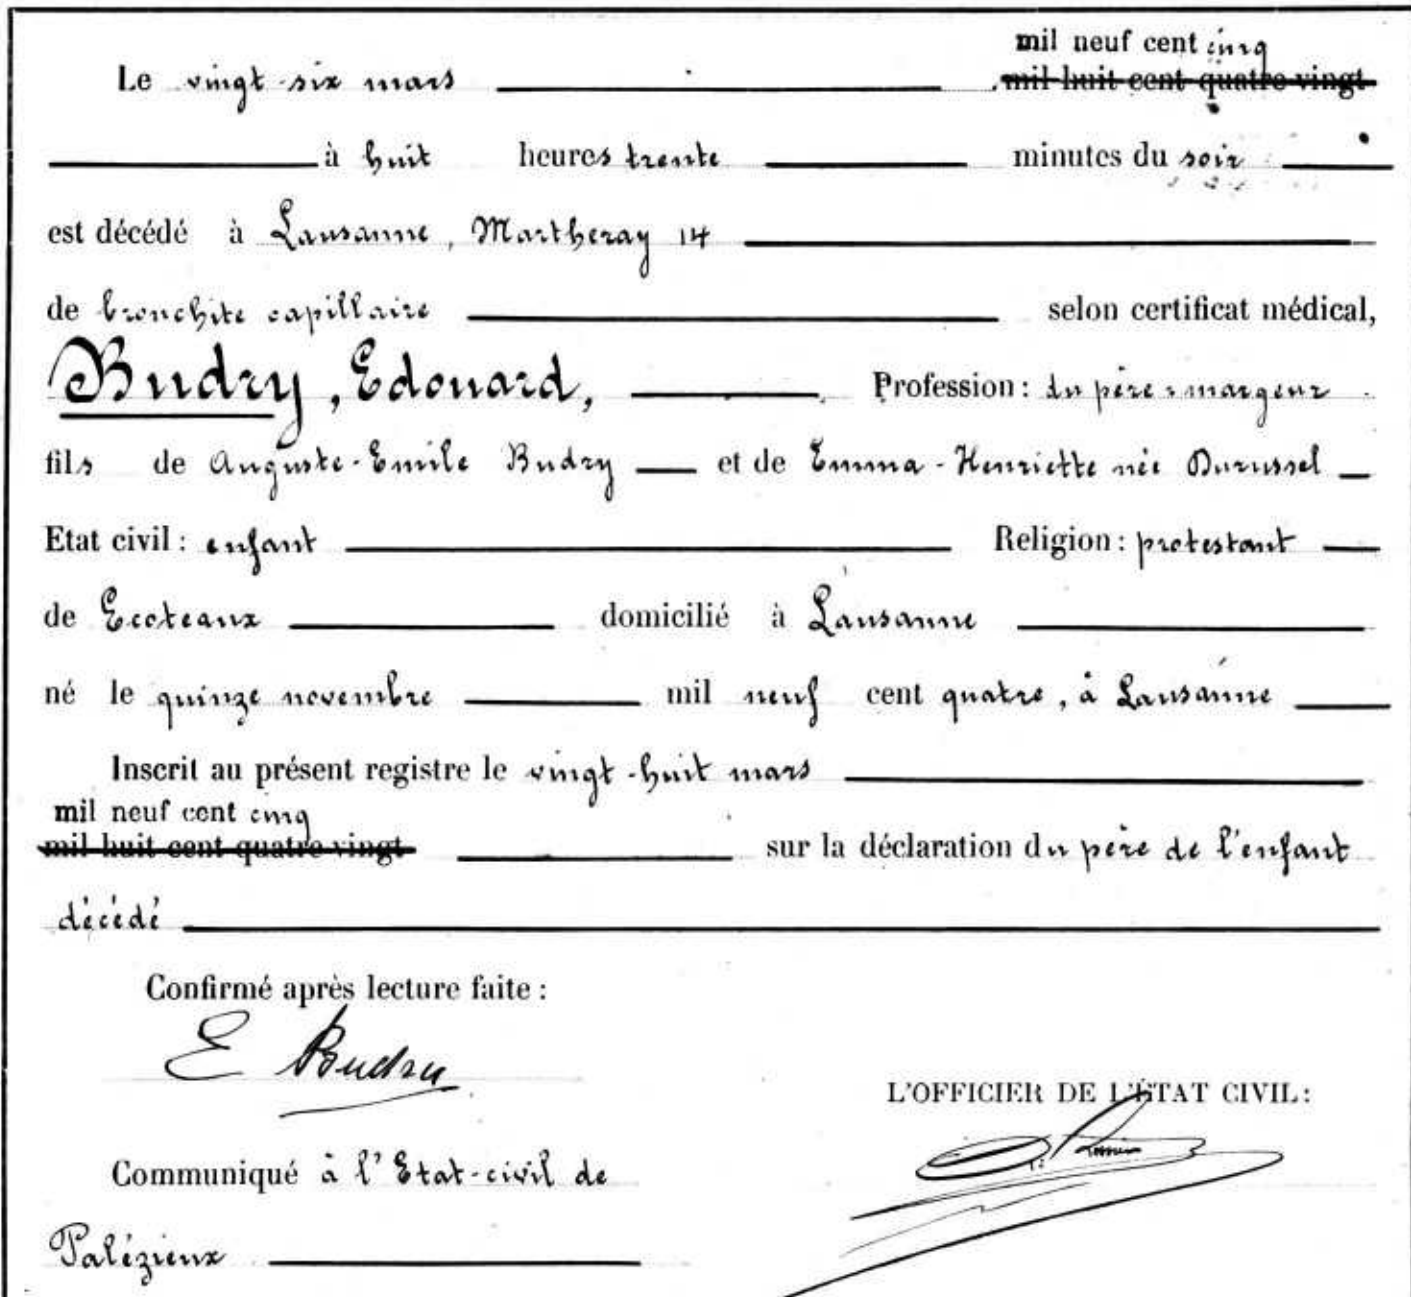 mil neuf cent cinq
Le vingt-six mars mil huit cent quatre-vingt
à huit heures trente minutes du soir
est décédé à Lausanne, Martheray 14
de bronchite capillaire selon certificat médical,
Budry, Edouard, Profession: du père: margeur
fils de Auguste-Emile Budry et de Emma-Henriette née Durussel
Etat civil: enfant Religion: protestant
de Ecoteaux domicilié à Lausanne
né le quinze novembre mil neuf cent quatre, à Lausanne
Inscrit au présent registre le vingt-huit mars
mil neuf cent cinq
mil huit cent quatre-vingt sur la déclaration du père de l'enfant
décédé
Confirmé après lecture faite:
E Budry
L'OFFICIER DE L'ÉTAT CIVIL:
Communiqué à l'Etat-civil de
Palézieux